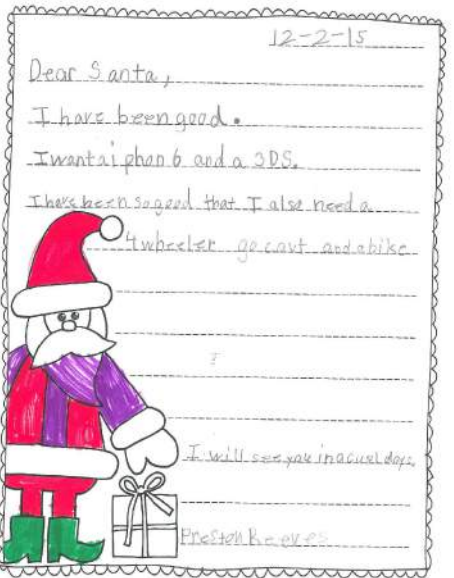 12-2-15
Dear Santa,
I have been good.
I want ai phon 6 and a 3DS.
I have been so good that I also need a
4 wheeler go cart and a bike
I will see you in a cuel days.
Preston Reeves